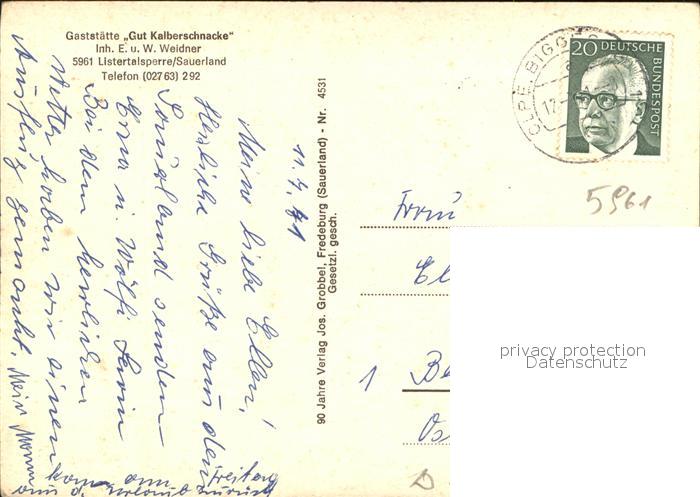 Gaststätte „Gut Kalberschnacke“
Inh. E. u. W. Weidner
5961 Listertalsperre/Sauerland
Telefon (02763) 292
11.4.71
Meine liebe Ellen!
Herzliche Grüße aus dem
Sauerland senden
Erna u. Wölfi
Bei dem herrlichen
Wetter haben wir einen
Ausflug gemacht. Mein Mann
kam am Freitag
aus d. Urlaub zurück
90 Jahre Verlag Jos. Grobbel, Fredeburg (Sauerland) - Nr. 4531
Gesetzl. gesch.
OLPE BIGGESEE
17
20 DEUTSCHE BUNDESPOST
5961
Frau
El
1 Be
Os
D
privacy protection
Datenschutz